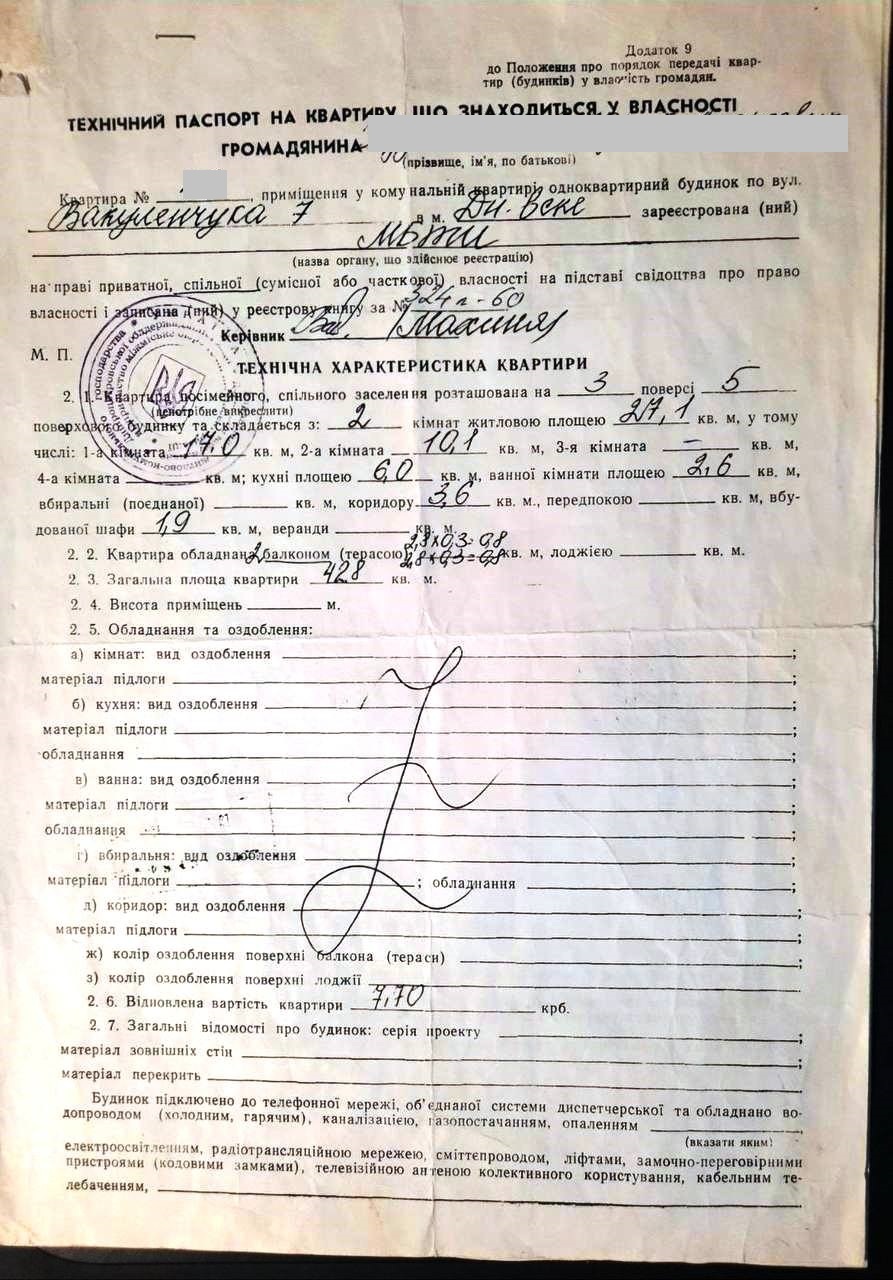 Додаток 9
до Положення про порядок передачі квар-
тир (будинків) у власність громадян.
ТЕХНІЧНИЙ ПАСПОРТ НА КВАРТИРУ, ЩО ЗНАХОДИТЬСЯ У ВЛАСНОСТІ
ГРОМАДЯНИНА
(прізвище, ім'я, по батькові)
Квартира № , приміщення у комунальній квартирі, одноквартирний будинок по вул.
Вакуленчука 7 в м. Дн-вськ зареєстрована (ний)
МБТИ
(назва органу, що здійснює реєстрацію)
на праві приватної, спільної (сумісної або часткової) власності на підставі свідоцтва про право
власності і записана (ний) у реєстрову книгу за № 324п-60
Керівник Махиня
М. П.
ТЕХНІЧНА ХАРАКТЕРИСТИКА КВАРТИРИ
2. 1. Квартира посімейного, спільного заселення розташована на 3 поверсі 5
(непотрібне викреслити)
поверхового будинку та складається з: 2 кімнат житловою площею 27,1 кв. м, у тому
числі: 1-а кімната 17,0 кв. м, 2-а кімната 10,1 кв. м, 3-я кімната — кв. м,
4-а кімната кв. м; кухні площею 6,0 кв. м, ванної кімнати площею 2,6 кв. м,
вбиральні (поєднаної) кв. м, коридору 3,6 кв. м., передпокою кв. м, вбу-
дованої шафи 1,9 кв. м, веранди кв. м.
2,8х0,3=0,8
2. 2. Квартира обладнана 2 балконом (терасою) 2,8х0,3=0,8 кв. м, лоджією кв. м.
2. 3. Загальна площа квартири 42,8 кв. м.
2. 4. Висота приміщень м.
2. 5. Обладнання та оздоблення:
а) кімнат: вид оздоблення ;
матеріал підлоги ;
б) кухня: вид оздоблення ;
матеріал підлоги ;
обладнання ;
в) ванна: вид оздоблення ;
матеріал підлоги ;
обладнання ;
г) вбиральня: вид оздоблення ;
матеріал підлоги ; обладнання ;
д) коридор: вид оздоблення ;
матеріал підлоги ;
ж) колір оздоблення поверхні балкона (тераси) ;
з) колір оздоблення поверхні лоджії
2. 6. Відновлена вартість квартири 7,70 крб.
2. 7. Загальні відомості про будинок: серія проекту ;
матеріал зовнішніх стін ;
матеріал перекрить ;
Будинок підключено до телефонної мережі, об'єднаної системи диспетчерської та обладнано во-
допроводом (холодним, гарячим), каналізацією, газопостачанням, опаленням
(вказати яким)
електроосвітленням, радіотрансляційною мережею, сміттепроводом, ліфтами, замочно-переговірними
пристроями (кодовими замками), телевізійною антеною колективного користування, кабельним те-
лебаченням,